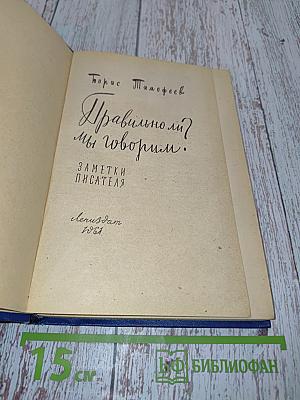 Борис Тимофеев
Правильно ли
мы говорим?
ЗАМЕТКИ
ПИСАТЕЛЯ
Лениздат
1961
15 см.
БФ БИБЛИОФАН